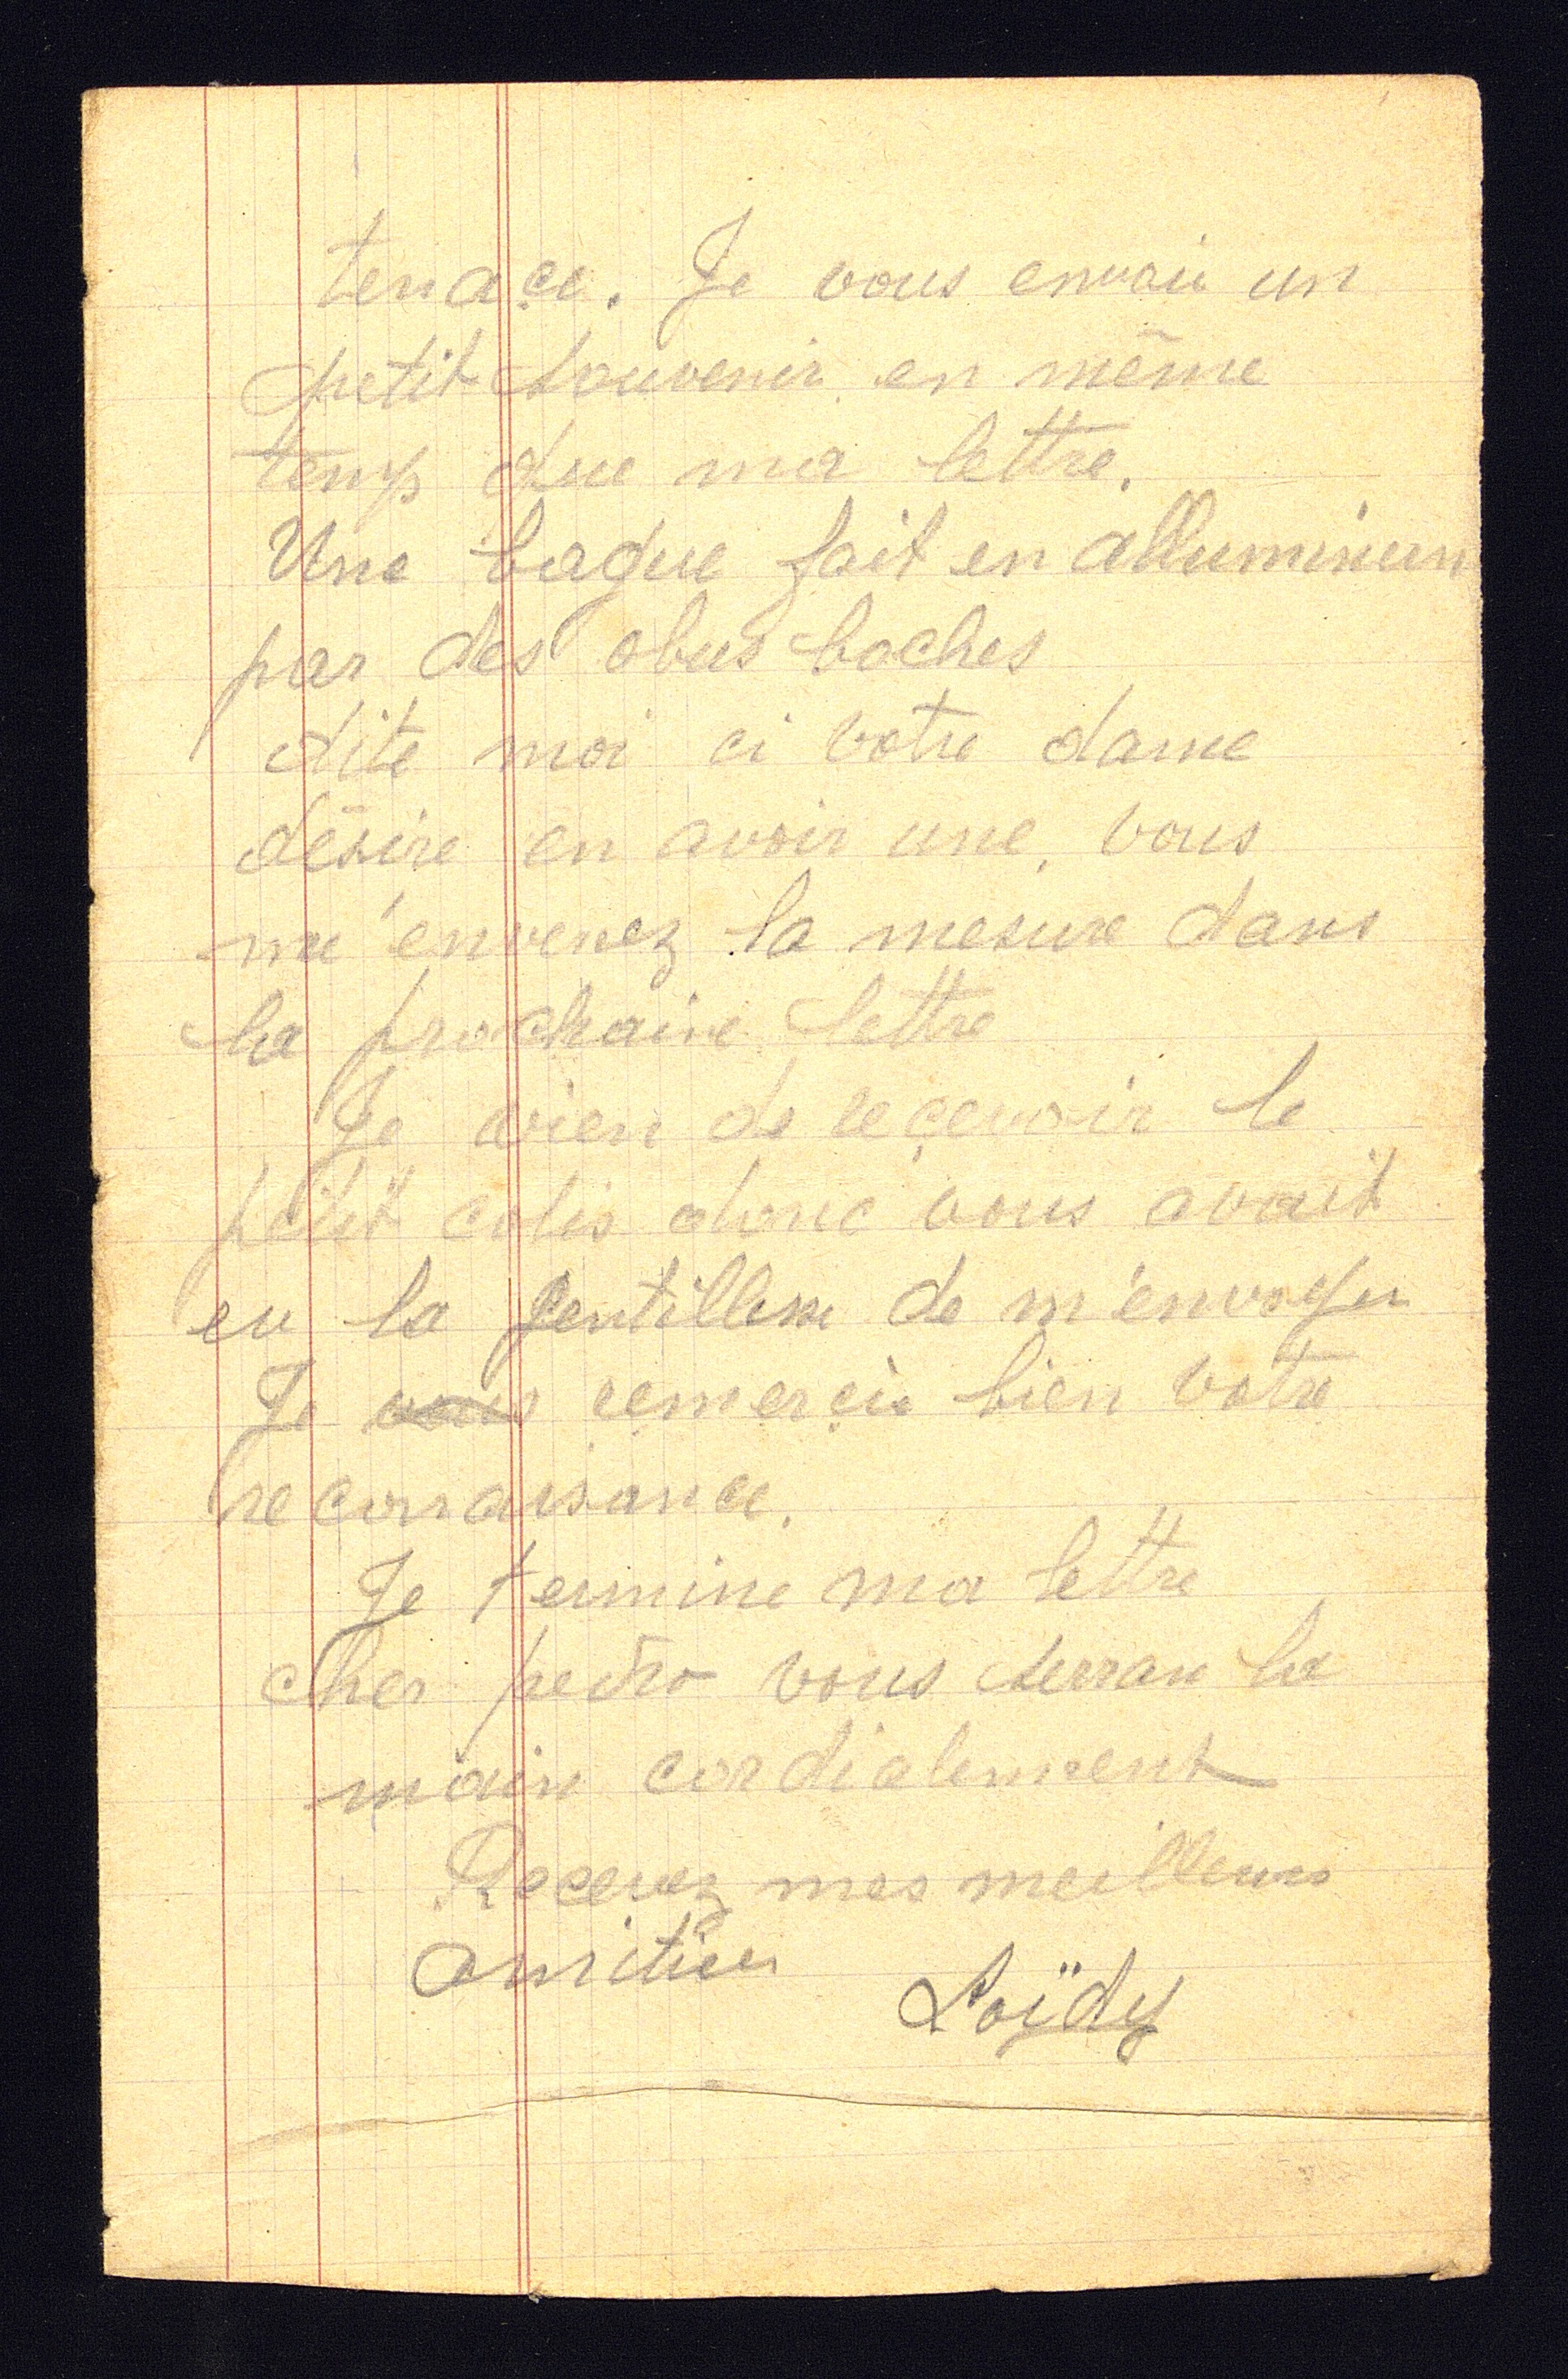 tenace. Je vous envoie un
petit souvenir en même
temp que ma lettre.
Une bague fait en alluminium
par des obus boches
dite moi ci votre dame
désire en avoir une, vous
me l'enverez la mesure dans
la prochaine lettre
Je vien de reçevoir le
petit colis donc vous avait
eu la gentillesse de m'envoyer
Je vous remerçie bien votre
reconnaisance.
Je termine ma lettre
cher pedro vous serran la
main cordialement
Recevez mes meilleurs
amitiées
Loïdy